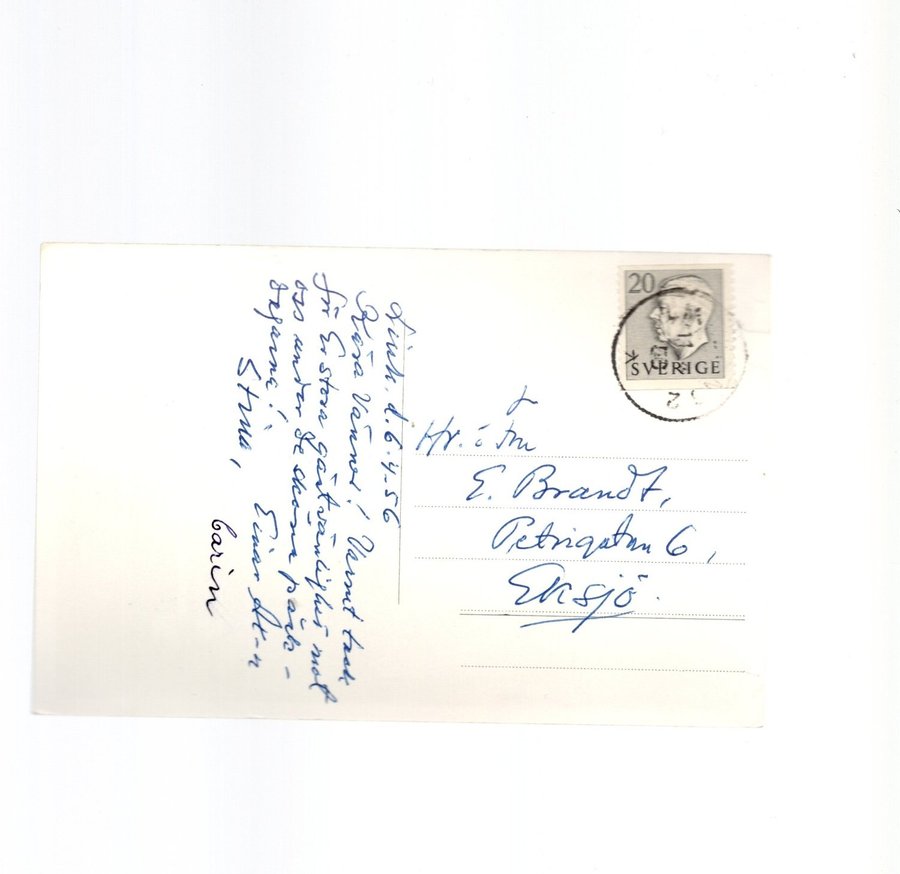 Link. d. 6.4.56
Kära Vänner! Varmt tack
för Er stora gästvänlighet mot
oss under de sköna påsk-
dagarna!
Stina, Einar
Carin
20
SVERIGE
Hr. o Fru
E. Brandt,
Petrigatan 6,
Eksjö.